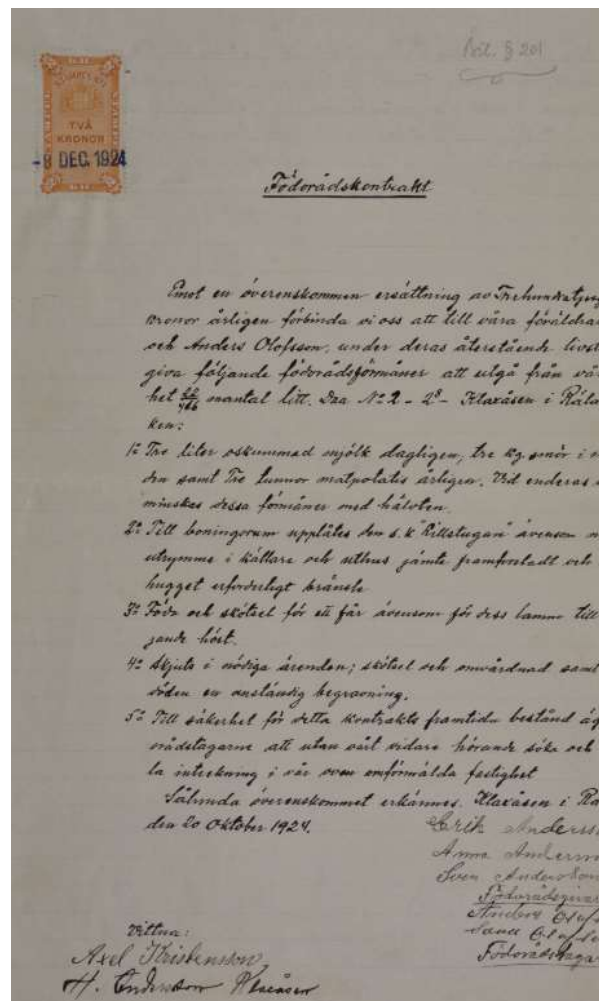 Bil. § 201
STÄMPEL
TVÅ
KRONOR
-8 DEC. 1924
Födorådskontrakt
Emot en överenskommen ersättning av Trehundratjug
kronor årligen förbinda vi oss att till våra föräldrar
och Anders Olofsson, under deras återstående livst
giva följande födorådsförmåner att utgå från vår
het 22/466 mantal litt. Daa No 2 - 28 - Klaxåsen i Räta
ken:
1o Tre liter oskummad mjölk dagligen, tre kg smör i m
den samt Tre tunnor matpotatis årligen. Vid enderas
minskas dessa förmåner med hälvten.
2o Till boningsrum upplåtes den s.k "Lillstugan" ävensom
utrymme i källare och uthus jämte framforsladt och
hugget erforderligt bränsle
3o Föda och skötsel för ett får ävensom för dess lamm till
jande höst.
4o Skjuts i nödiga ärenden; skötsel och omvårdnad samt
döden en anständig begravning.
5o Till säkerhet för detta kontrakts framtida bestånd äg
orådstagarne att utan vårt vidare hörande söka och
la inteckning i vår ovan omförmälda fastighet
Sålunda överenskommet erkännes. Klaxåsen i Rä
den 20 Oktober 1924.
Erik Anderss
Anna Anderss
Sven Andersson
Födorådsgivar
Anders Olofs
Olofs
Födorådstagar
Vittna:
Axel Kristensson
H. Andersson Klaxåsen